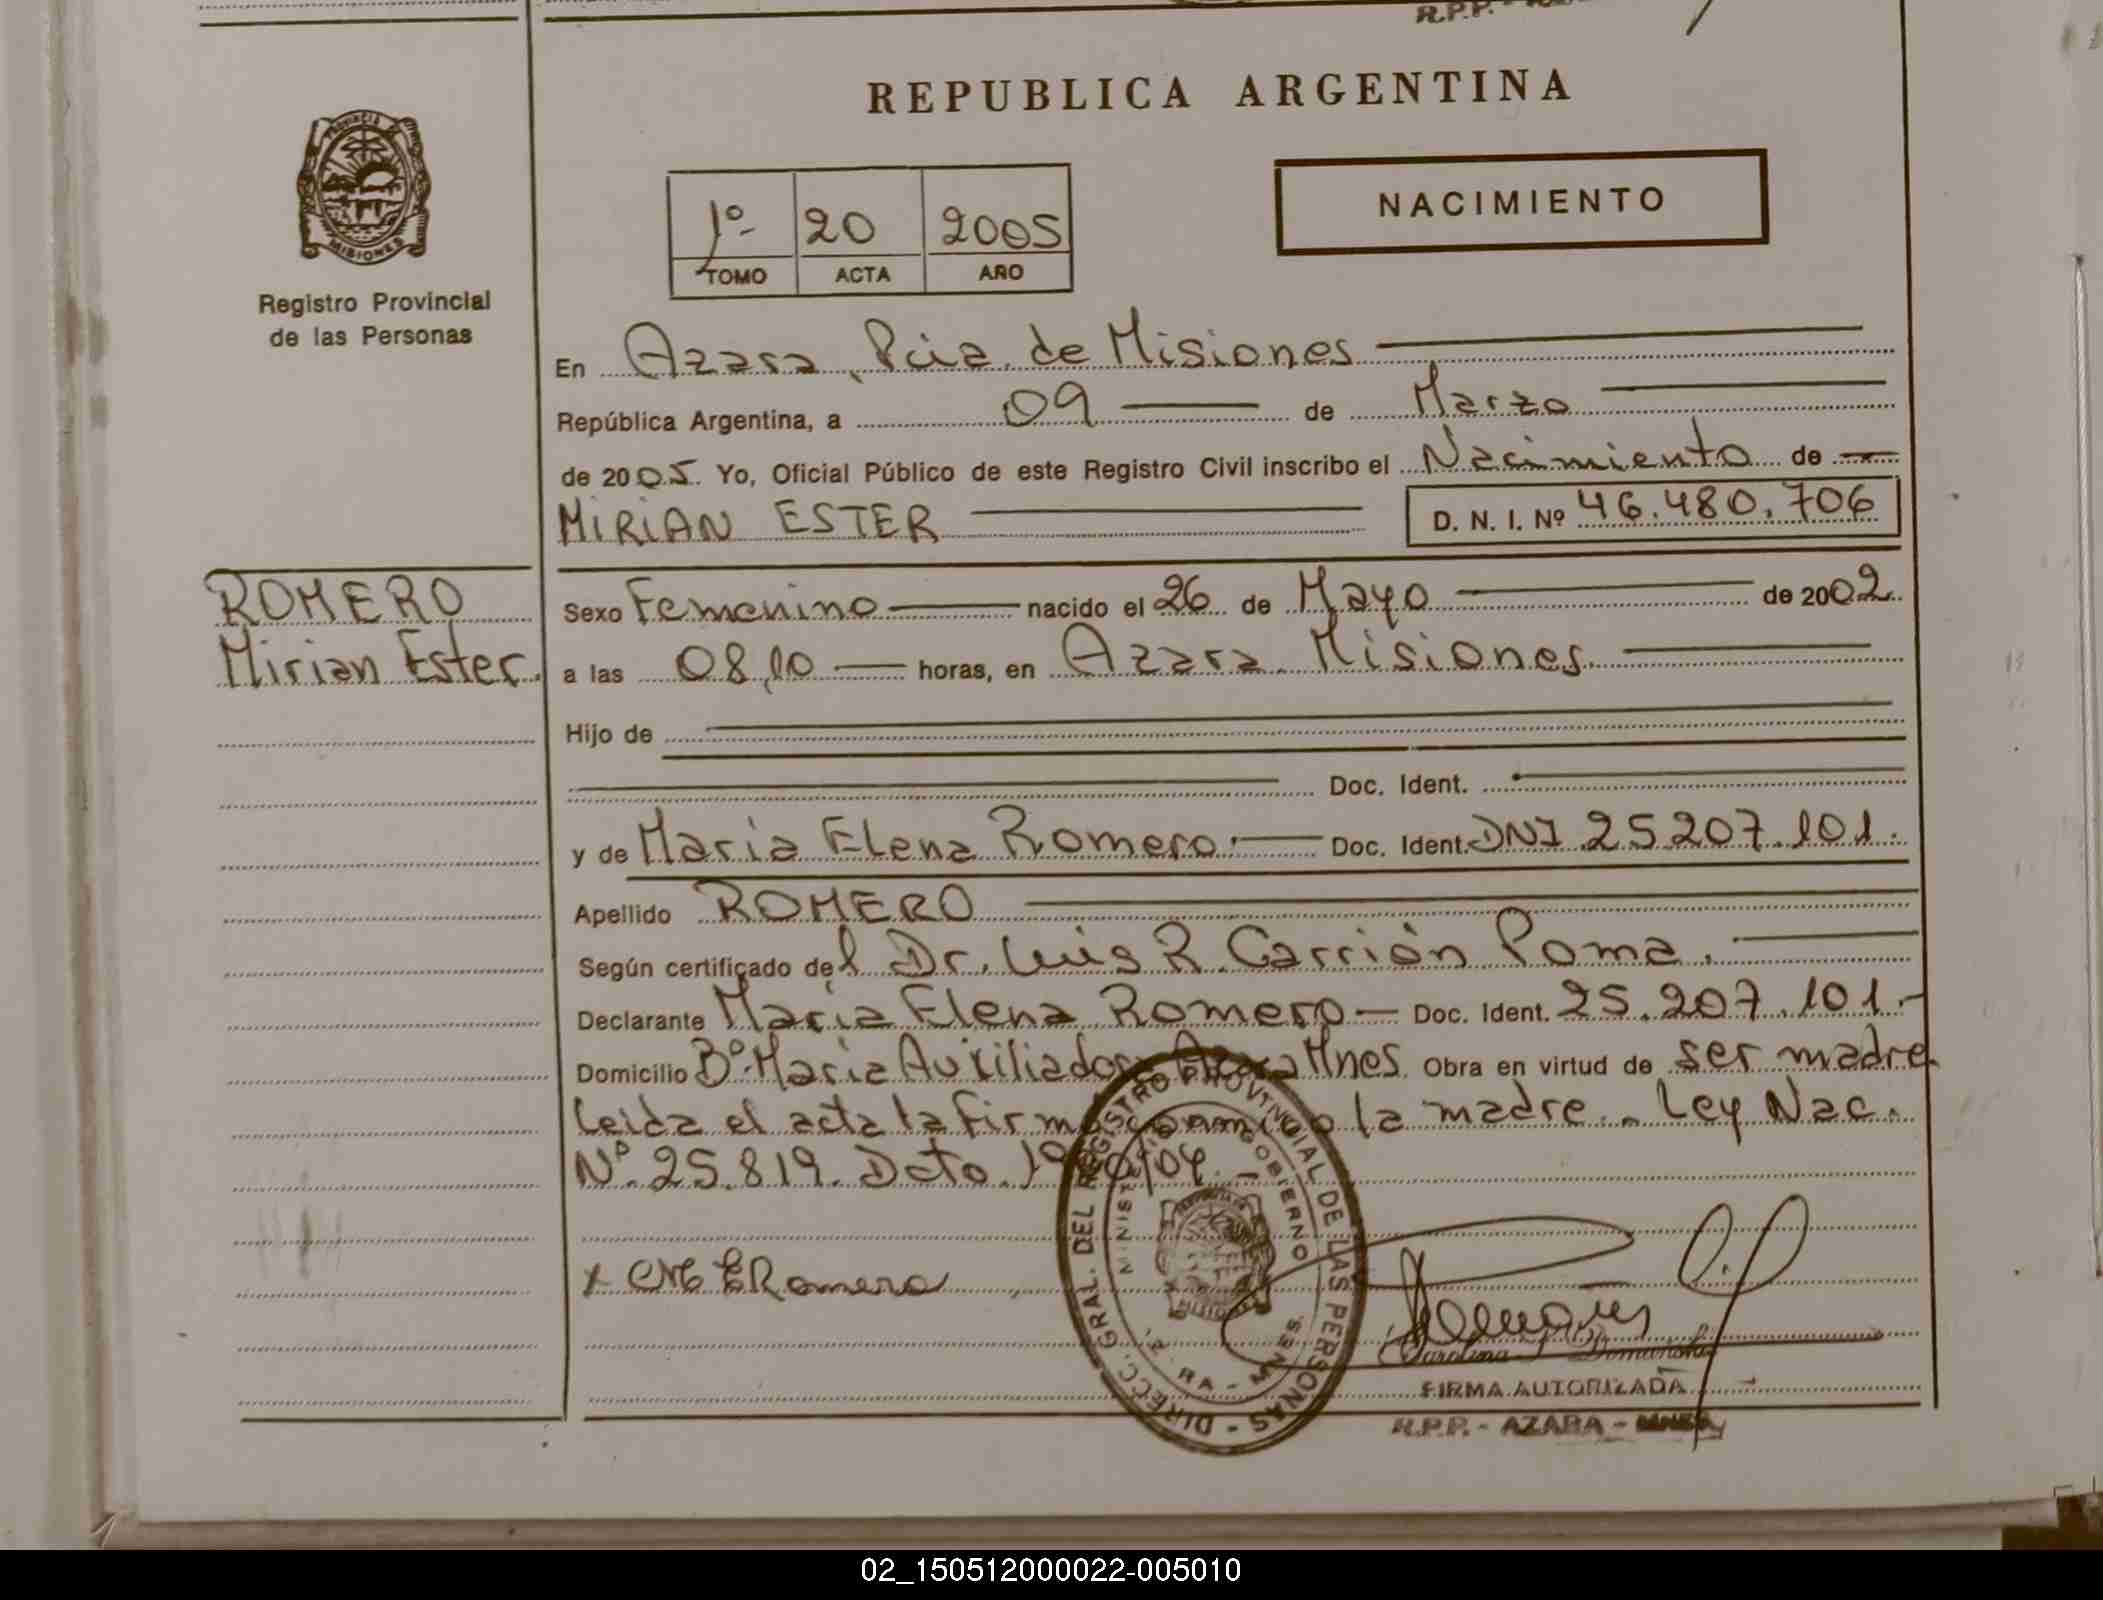 R.P.P.
REPUBLICA ARGENTINA
PROVINCIA DE
MISIONES
Registro Provincial
de las Personas
1º 20 2005
TOMO ACTA AÑO
NACIMIENTO
En Azara, Pcia. de Misiones
República Argentina, a 09 de Marzo
de 2005. Yo, Oficial Público de este Registro Civil inscribo el Nacimiento de
MIRIAN ESTER D. N. I. Nº 46.480.706
ROMERO
Mirian Ester.
Sexo Femenino nacido el 26 de Mayo de 2002.
a las 08,10 horas, en Azara Misiones.
Hijo de
Doc. Ident.
y de Maria Elena Romero. Doc. Ident. DNI 25.207.101.
Apellido ROMERO
Según certificado del Dr. Luis R. Carrión Poma.
Declarante Maria Elena Romero Doc. Ident. 25.207.101.-
Domicilio Bº Maria Auxiliadora Azara Mnes. Obra en virtud de ser madre
Leida el acta la firma conmigo la madre.- Ley Nac.
Nº 25.819. Dcto. /04.-
x M E Romero
DIRECC. GRAL. DEL REGISTRO PROVINCIAL DE LAS PERSONAS -
MINISTERIO GOBIERNO
RA - MNES.
Carolina
FIRMA AUTORIZADA
R.P.P. - AZARA - MNES.
02_150512000022-005010